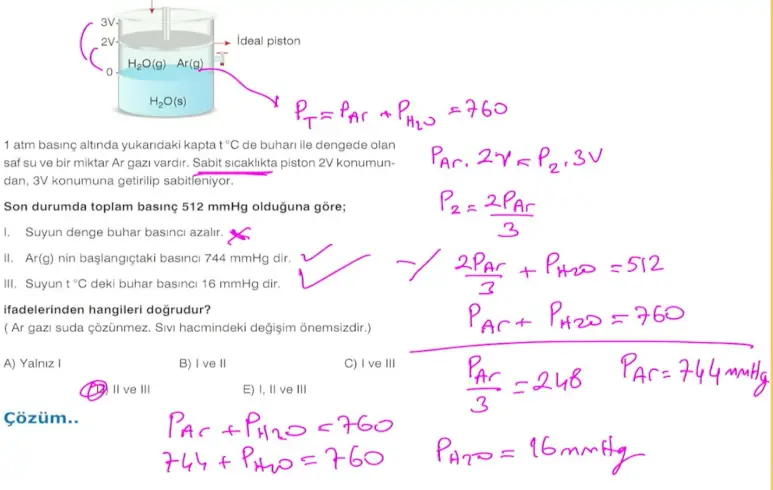 3V
2V
İdeal piston
H₂O(g) Ar(g)
0
H₂O(s)
P_T = P_Ar + P_H₂O = 760
1 atm basınç altında yukarıdaki kapta t °C de buharı ile dengede olan
saf su ve bir miktar Ar gazı vardır. Sabit sıcaklıkta piston 2V konumun-
dan, 3V konumuna getirilip sabitleniyor.
P_Ar . 2V = P₂ . 3V
P₂ = 2P_Ar / 3
Son durumda toplam basınç 512 mmHg olduğuna göre;
I. Suyun denge buhar basıncı azalır.
II. Ar(g) nin başlangıçtaki basıncı 744 mmHg dir.
III. Suyun t °C deki buhar basıncı 16 mmHg dir.
-/ 2P_Ar / 3 + P_H₂O = 512
P_Ar + P_H₂O = 760
ifadelerinden hangileri doğrudur?
( Ar gazı suda çözünmez. Sıvı hacmindeki değişim önemsizdir.)
A) Yalnız I B) I ve II C) I ve III
P_Ar / 3 = 248 P_Ar = 744 mmHg
D) II ve III E) I, II ve III
Çözüm..
P_Ar + P_H₂O = 760
744 + P_H₂O = 760 P_H₂O = 16 mmHg